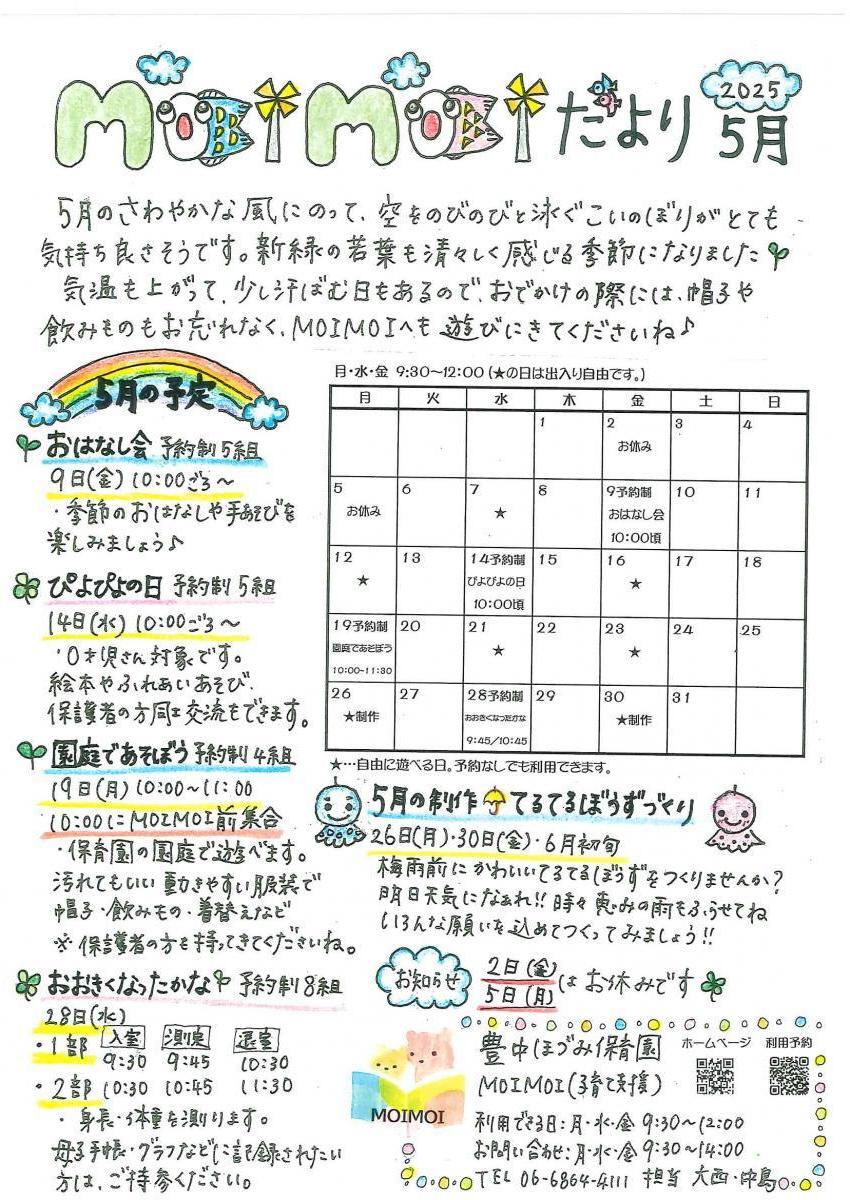 MOIMOIだより 2025 5月
5月のさわやかな風にのって、空をのびのびと泳ぐこいのぼりがとても
気持ち良さそうです。新緑の若葉も清々しく感じる季節になりました
気温も上がって、少し汗ばむ日もあるので、おでかけの際には、帽子や
飲みものもお忘れなく、MOIMOIへも遊びにきてくださいね♪
5月の予定
おはなし会 予約制5組
9日(金) 10:00ごろ～
・季節のおはなしや手あそびを
楽しみましょう♪
ぴよぴよの日 予約制5組
14日(水) 10:00ごろ～
・0才児さん対象です。
絵本やふれあいあそび、
保護者の方同士交流もできます。
園庭であそぼう 予約制4組
19日(月) 10:00～11:00
10:00にMOIMOI前集合
・保育園の園庭で遊べます。
汚れてもいい動きやすい服装で
帽子・飲みもの・着替えなど
※保護者の方も持ってきてくださいね。
おおきくなったかな 予約制8組
28日(水)
入室 測定 退室
・1部 9:30 9:45 10:30
・2部 10:30 10:45 11:30
・身長・体重を測ります。
母子手帳・グラフなどに記録されたい
方は、ご持参ください。
月・水・金 9:30～12:00 (★の日は出入り自由です。)
月 火 水 木 金 土 日
1 2 3 4
お休み
5 6 7 8 9予約制 10 11
お休み ★ おはなし会
10:00頃
12 13 14予約制 15 16 17 18
★ ぴよぴよの日 ★
10:00頃
19予約制 20 21 22 23 24 25
園庭であそぼう ★ ★
10:00-11:30
26 27 28予約制 29 30 31
★制作 おおきくなったかな ★制作
9:45/10:45
★…自由に遊べる日。予約なしでも利用できます。
5月の制作 てるてるぼうずづくり
26日(月)・30日(金)・6月初旬
梅雨前にかわいいてるてるぼうずをつくりませんか?
明日天気になぁれ!! 時々恵みの雨もふらせてね
いろんな願いを込めてつくってみましょう!!
お知らせ 2日(金)
5日(月) はお休みです
MOIMOI
豊中ほづみ保育園 ホームページ 利用予約
MOIMOI(子育て支援)
利用できる日：月・水・金 9:30～12:00
お問い合わせ：月・水・金 9:30～14:00
TEL 06-6864-4111 担当 大西・中島